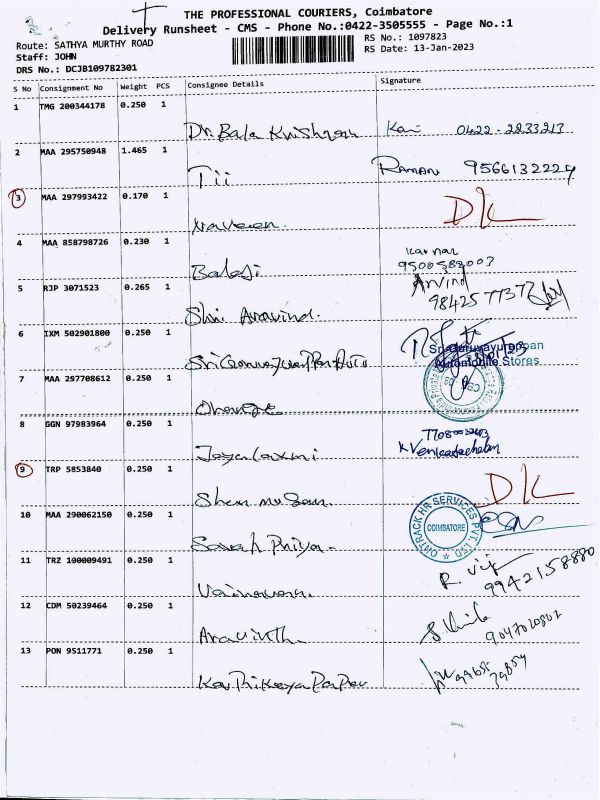 THE PROFESSIONAL COURIERS, Coimbatore
Delivery Runsheet - CMS - Phone No.:0422-3505555 - Page No.:1
Route: SATHYA MURTHY ROAD
RS No.: 1097823
Staff: JOHN
RS Date: 13-Jan-2023
DRS No.: DCJB109782301
S No Consignment No Weight PCS Consignee Details Signature
1 TMG 200344178 0.250 1
Dr Bala Krishnan 0422-2233213
2 MAA 295750948 1.465 1
Tii RAMAN 9566132224
3 MAA 297993422 0.170 1
DL
Naveen.
4 MAA 858798726 0.230 1
Karnan
Balaji 9500588003
5 RJP 3071523 0.265 1
Arvind
Shri Aravind. 9842577373
6 IXM 502901800 0.250 1
Sri Guruvayurappan
Automobile Stores
7 MAA 297708612 0.250 1
Orange
8 GGN 97983964 0.250 1
K Venkatachalam
Jayalaxmi
9 TRP 5853840 0.250 1
DL
10 MAA 290062150 0.250 1
ONTRACK HR SERVICES PVT. LTD
COIMBATORE
Sarah Priya.
11 TRZ 100009491 0.250 1
9942158880
12 CDM 50239464 0.250 1
Aravinth
13 PON 9511771 0.250 1